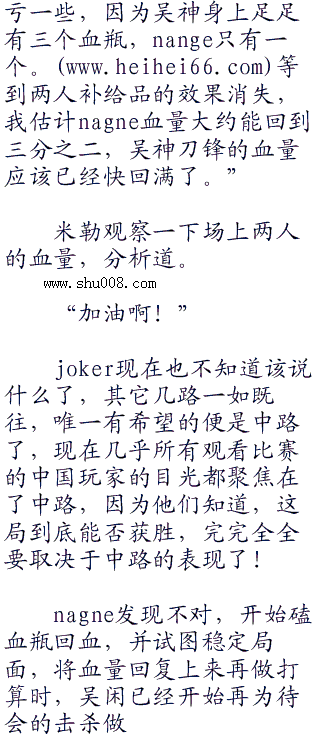 亏一些，因为吴神身上足足
有三个血瓶，nange只有一
个。(www.heihei66.com)等
到两人补给品的效果消失，
我估计nagne血量大约能回到
三分之二，吴神刀锋的血量
应该已经快回满了。”
米勒观察一下场上两人
的血量，分析道。
www.shu008.com
“加油啊！”
joker现在也不知道该说
什么了，其它几路一如既
往，唯一有希望的便是中路
了，现在几乎所有观看比赛
的中国玩家的目光都聚焦在
了中路，因为他们知道，这
局到底能否获胜，完完全全
要取决于中路的表现了！
nagne发现不对，开始磕
血瓶回血，并试图稳定局
面，将血量回复上来再做打
算时，吴闲已经开始再为待
会的击杀做